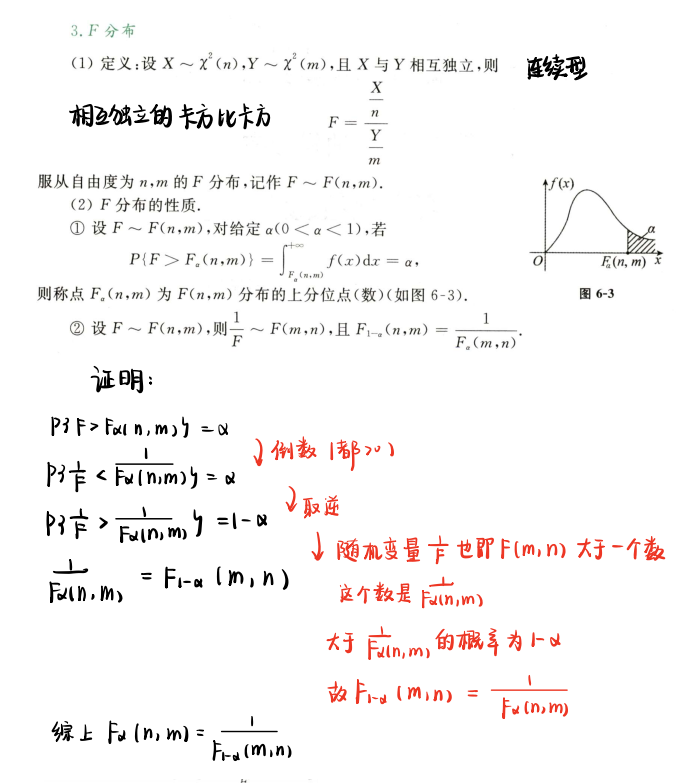 3. F 分布
(1) 定义:设 X ～ χ²(n),Y ～ χ²(m),且 X 与 Y 相互独立,则 连续型
相互独立的 卡方比卡方
F = (X/n)/(Y/m)
服从自由度为 n,m 的 F 分布,记作 F ～ F(n,m).
(2) F 分布的性质.
① 设 F ～ F(n,m),对给定 α(0 < α < 1),若
P{F > Fα(n,m)} = ∫_{Fα(n,m)}^{+∞} f(x)dx = α,
则称点 Fα(n,m) 为 F(n,m) 分布的上分位点(数)(如图 6-3).
f(x)
α
O Fα(n, m) x
图 6-3
② 设 F ～ F(n,m),则 1/F ～ F(m,n),且 F1-α(n,m) = 1/Fα(m,n).
证明:
P{F > Fα(n,m)} = α
倒数 (都>0)
P{1/F < 1/Fα(n,m)} = α
取逆
P{1/F > 1/Fα(n,m)} = 1-α
随机变量 1/F 也即 F(m,n) 大于一个数
1/Fα(n,m) = F1-α (m,n)
这个数是 1/Fα(n,m)
大于 1/Fα(n,m) 的概率为 1-α
故 F1-α (m,n) = 1/Fα(n,m)
综上 Fα (n,m) = 1/F1-α(m,n)